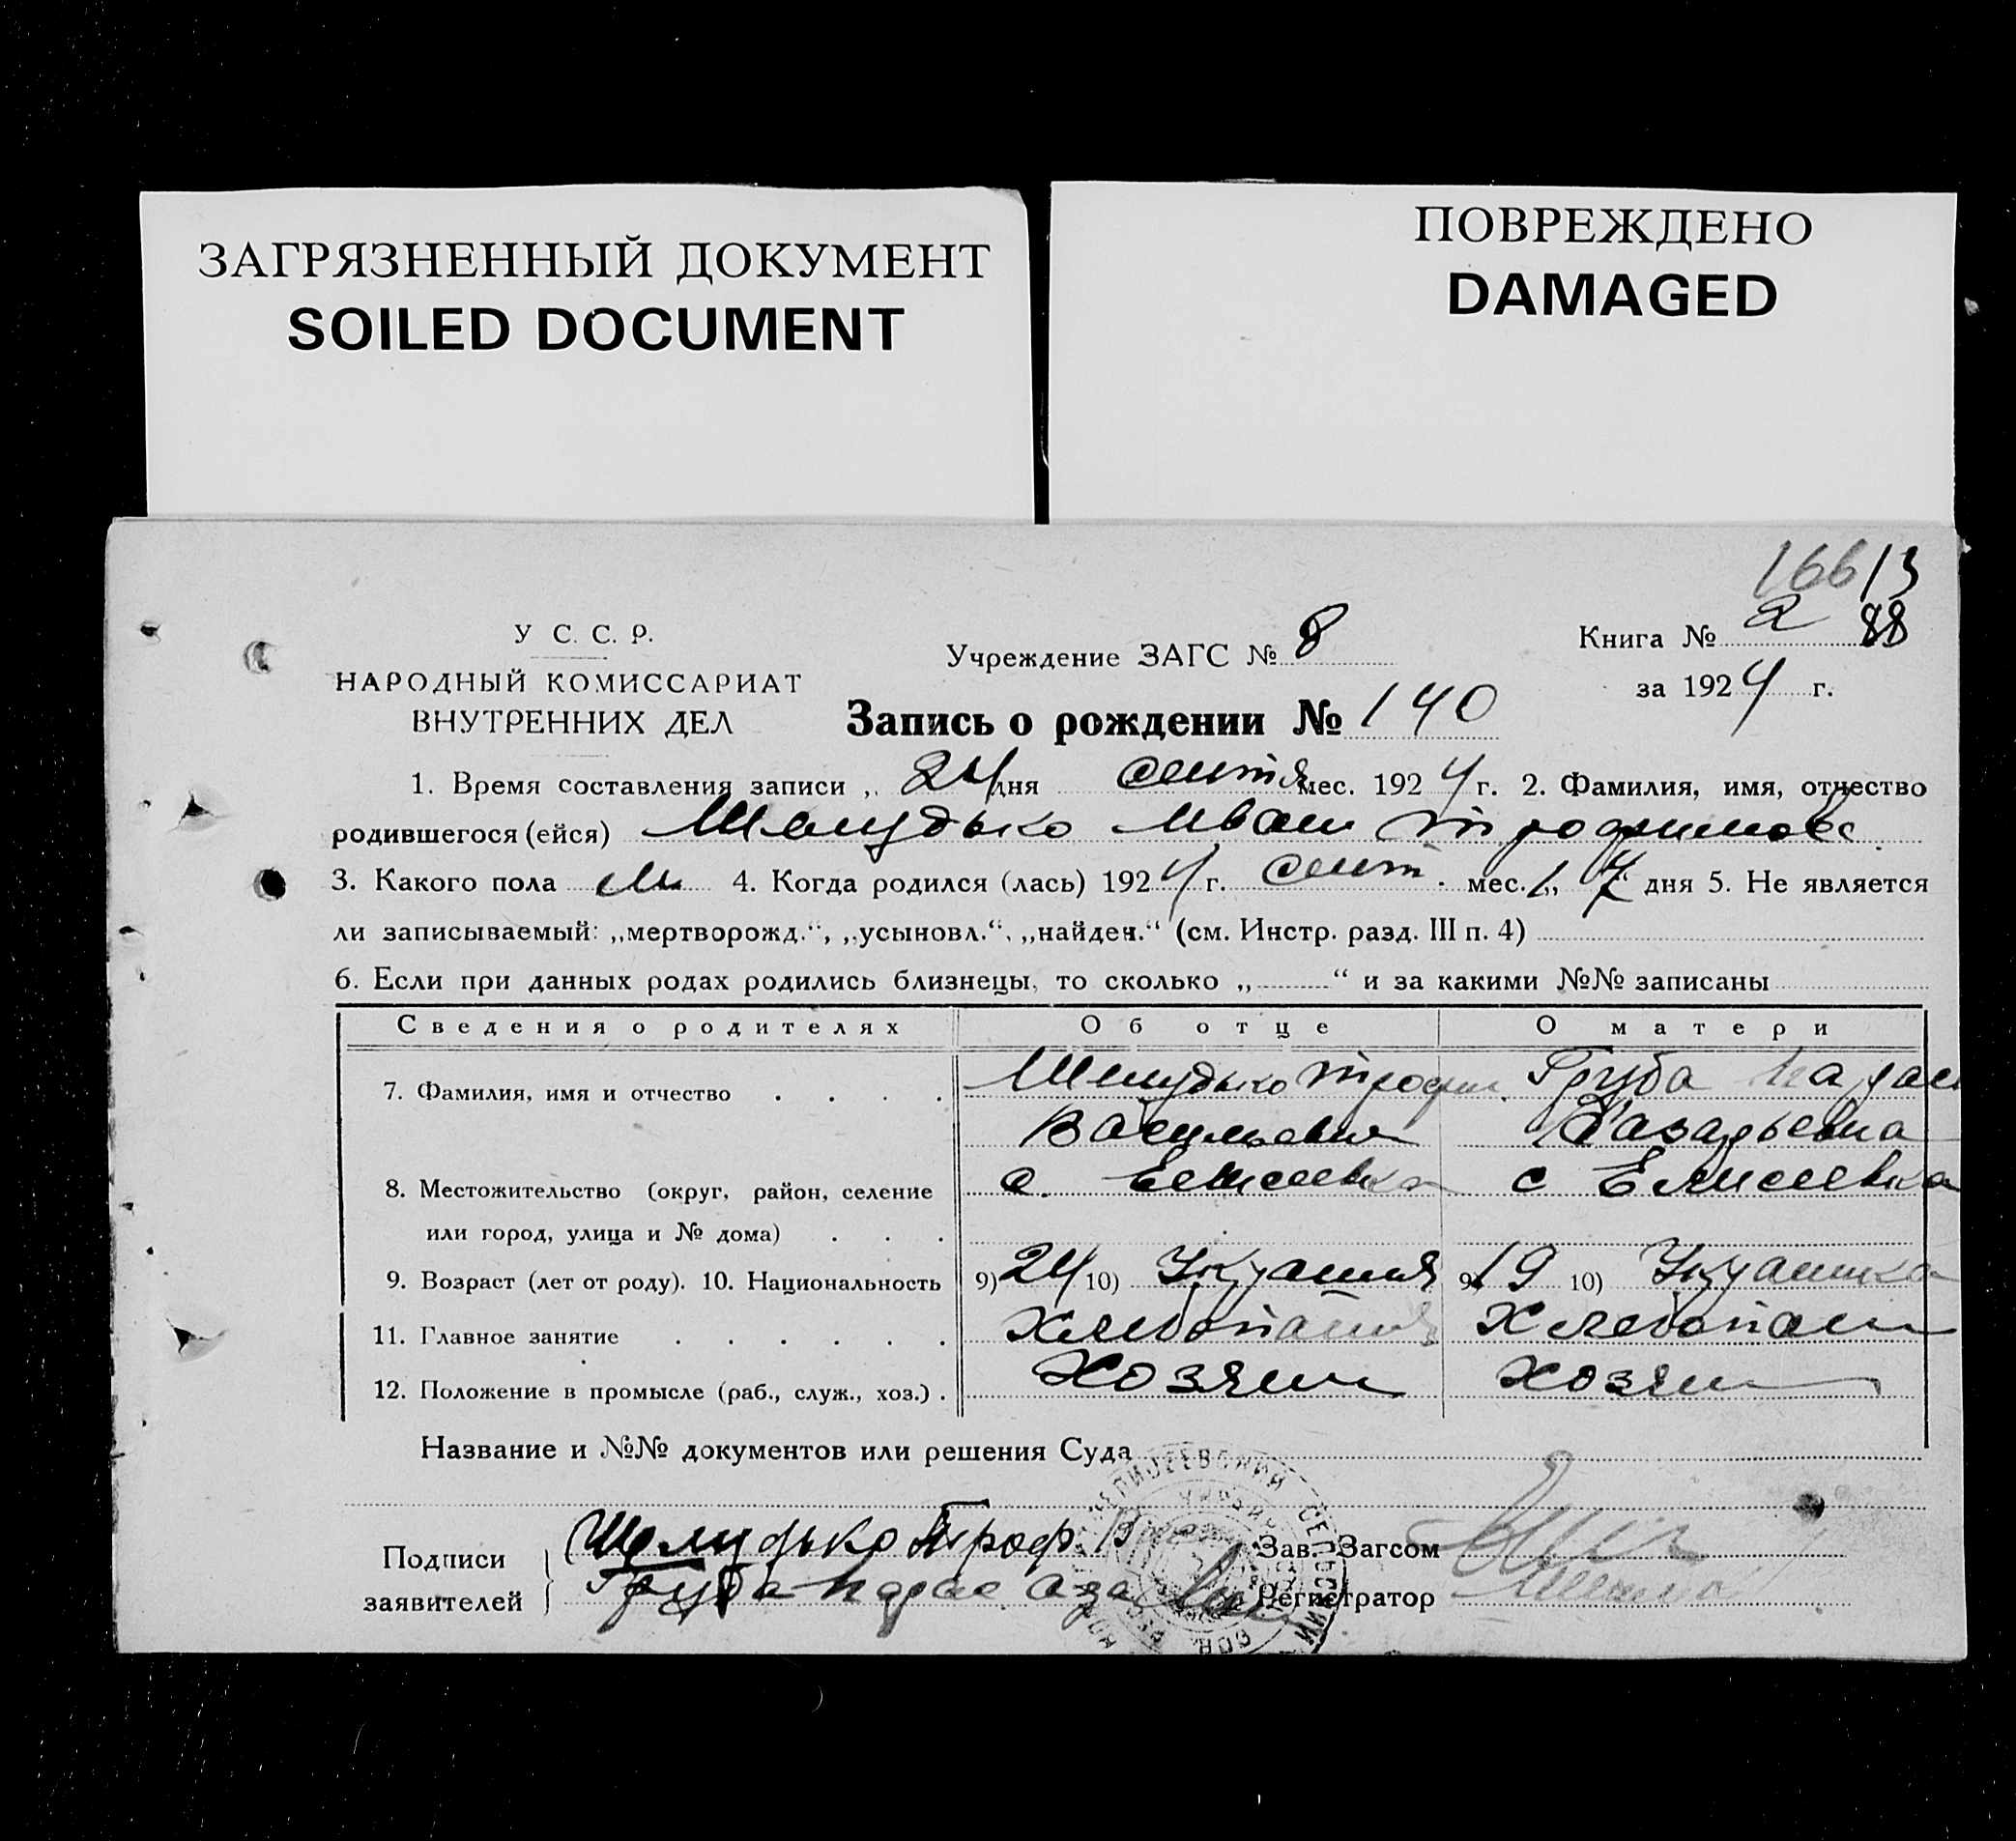 ЗАГРЯЗНЕННЫЙ ДОКУМЕНТ
SOILED DOCUMENT
ПОВРЕЖДЕНО
DAMAGED
166 13
88
У С. С. Р.
НАРОДНЫЙ КОМИССАРИАТ
ВНУТРЕННИХ ДЕЛ
Учреждение ЗАГС № 8
Книга № 2
за 1924 г.
Запись о рождении № 140
1. Время составления записи „ 24 дня сентя мес. 1924 г. 2. Фамилия, имя, отчество
родившегося (ейся) Шелудько Иван Трофимов
3. Какого пола М. 4. Когда родился (лась) 1924 г. сент. мес. „17“ дня 5. Не является
ли записываемый: „мертворожд.“, „усыновл.“, „найден.“ (см. Инстр. разд. III п. 4)
6. Если при данных родах родились близнецы, то сколько „ “ и за какими №№ записаны
Сведения о родителях Об отце О матери
7. Фамилия, имя и отчество Шелудько Трофим Груба
Васильевич Лазарьевна
8. Местожительство (округ, район, селение с. Елисеевка с Елисеевка
или город, улица и № дома)
9. Возраст (лет от роду). 10. Национальность 9) 24 10) 9) 19 10) Украинка
11. Главное занятие Хлебопаш Хлебопаш
12. Положение в промысле (раб., служ., хоз.) Хозяин Хозяин
Название и №№ документов или решения Суда
Подписи заявителей
Шелудько Троф. В
Груба
Зав. Загсом
Регистратор